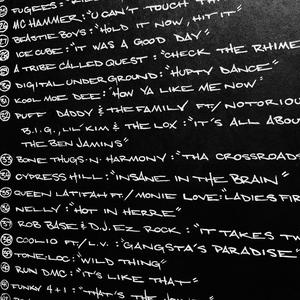 FUGEES:
26 MC HAMMER: "U CAN'T TOUCH THIS"
27 BEASTIE BOYS: "HOLD IT NOW, HIT IT"
28 ICE CUBE: "IT WAS A GOOD DAY"
29 A TRIBE CALLED QUEST: "CHECK THE RHIME
30 DIGITAL UNDERGROUND: "HUPTY DANCE"
31 KOOL MOE DEE: "HOW YA LIKE ME NOW"
32 PUFF DADDY & THE FAMILY FT/ NOTORIOU
B.I.G., LIL' KIM & THE LOX: "IT'S ALL ABOU
THE BENJAMINS"
33 BONE THUGS N HARMONY: "THA CROSSROADS
34 CYPRESS HILL: "INSANE IN THE BRAIN"
35 QUEEN LATIFAH FT/ MONIE LOVE: "LADIES FIRS
36 NELLY: "HOT IN HERRE"
37 ROB BASE & DJ. EZ ROCK: "IT TAKES TW
38 COOLIO FT/ L.V.: "GANGSTA'S PARADISE"
39 TONE LOC: "WILD THING"
40 RUN DMC: "IT'S LIKE THAT"
41 FUNKY 4+1: "THAT'S THE